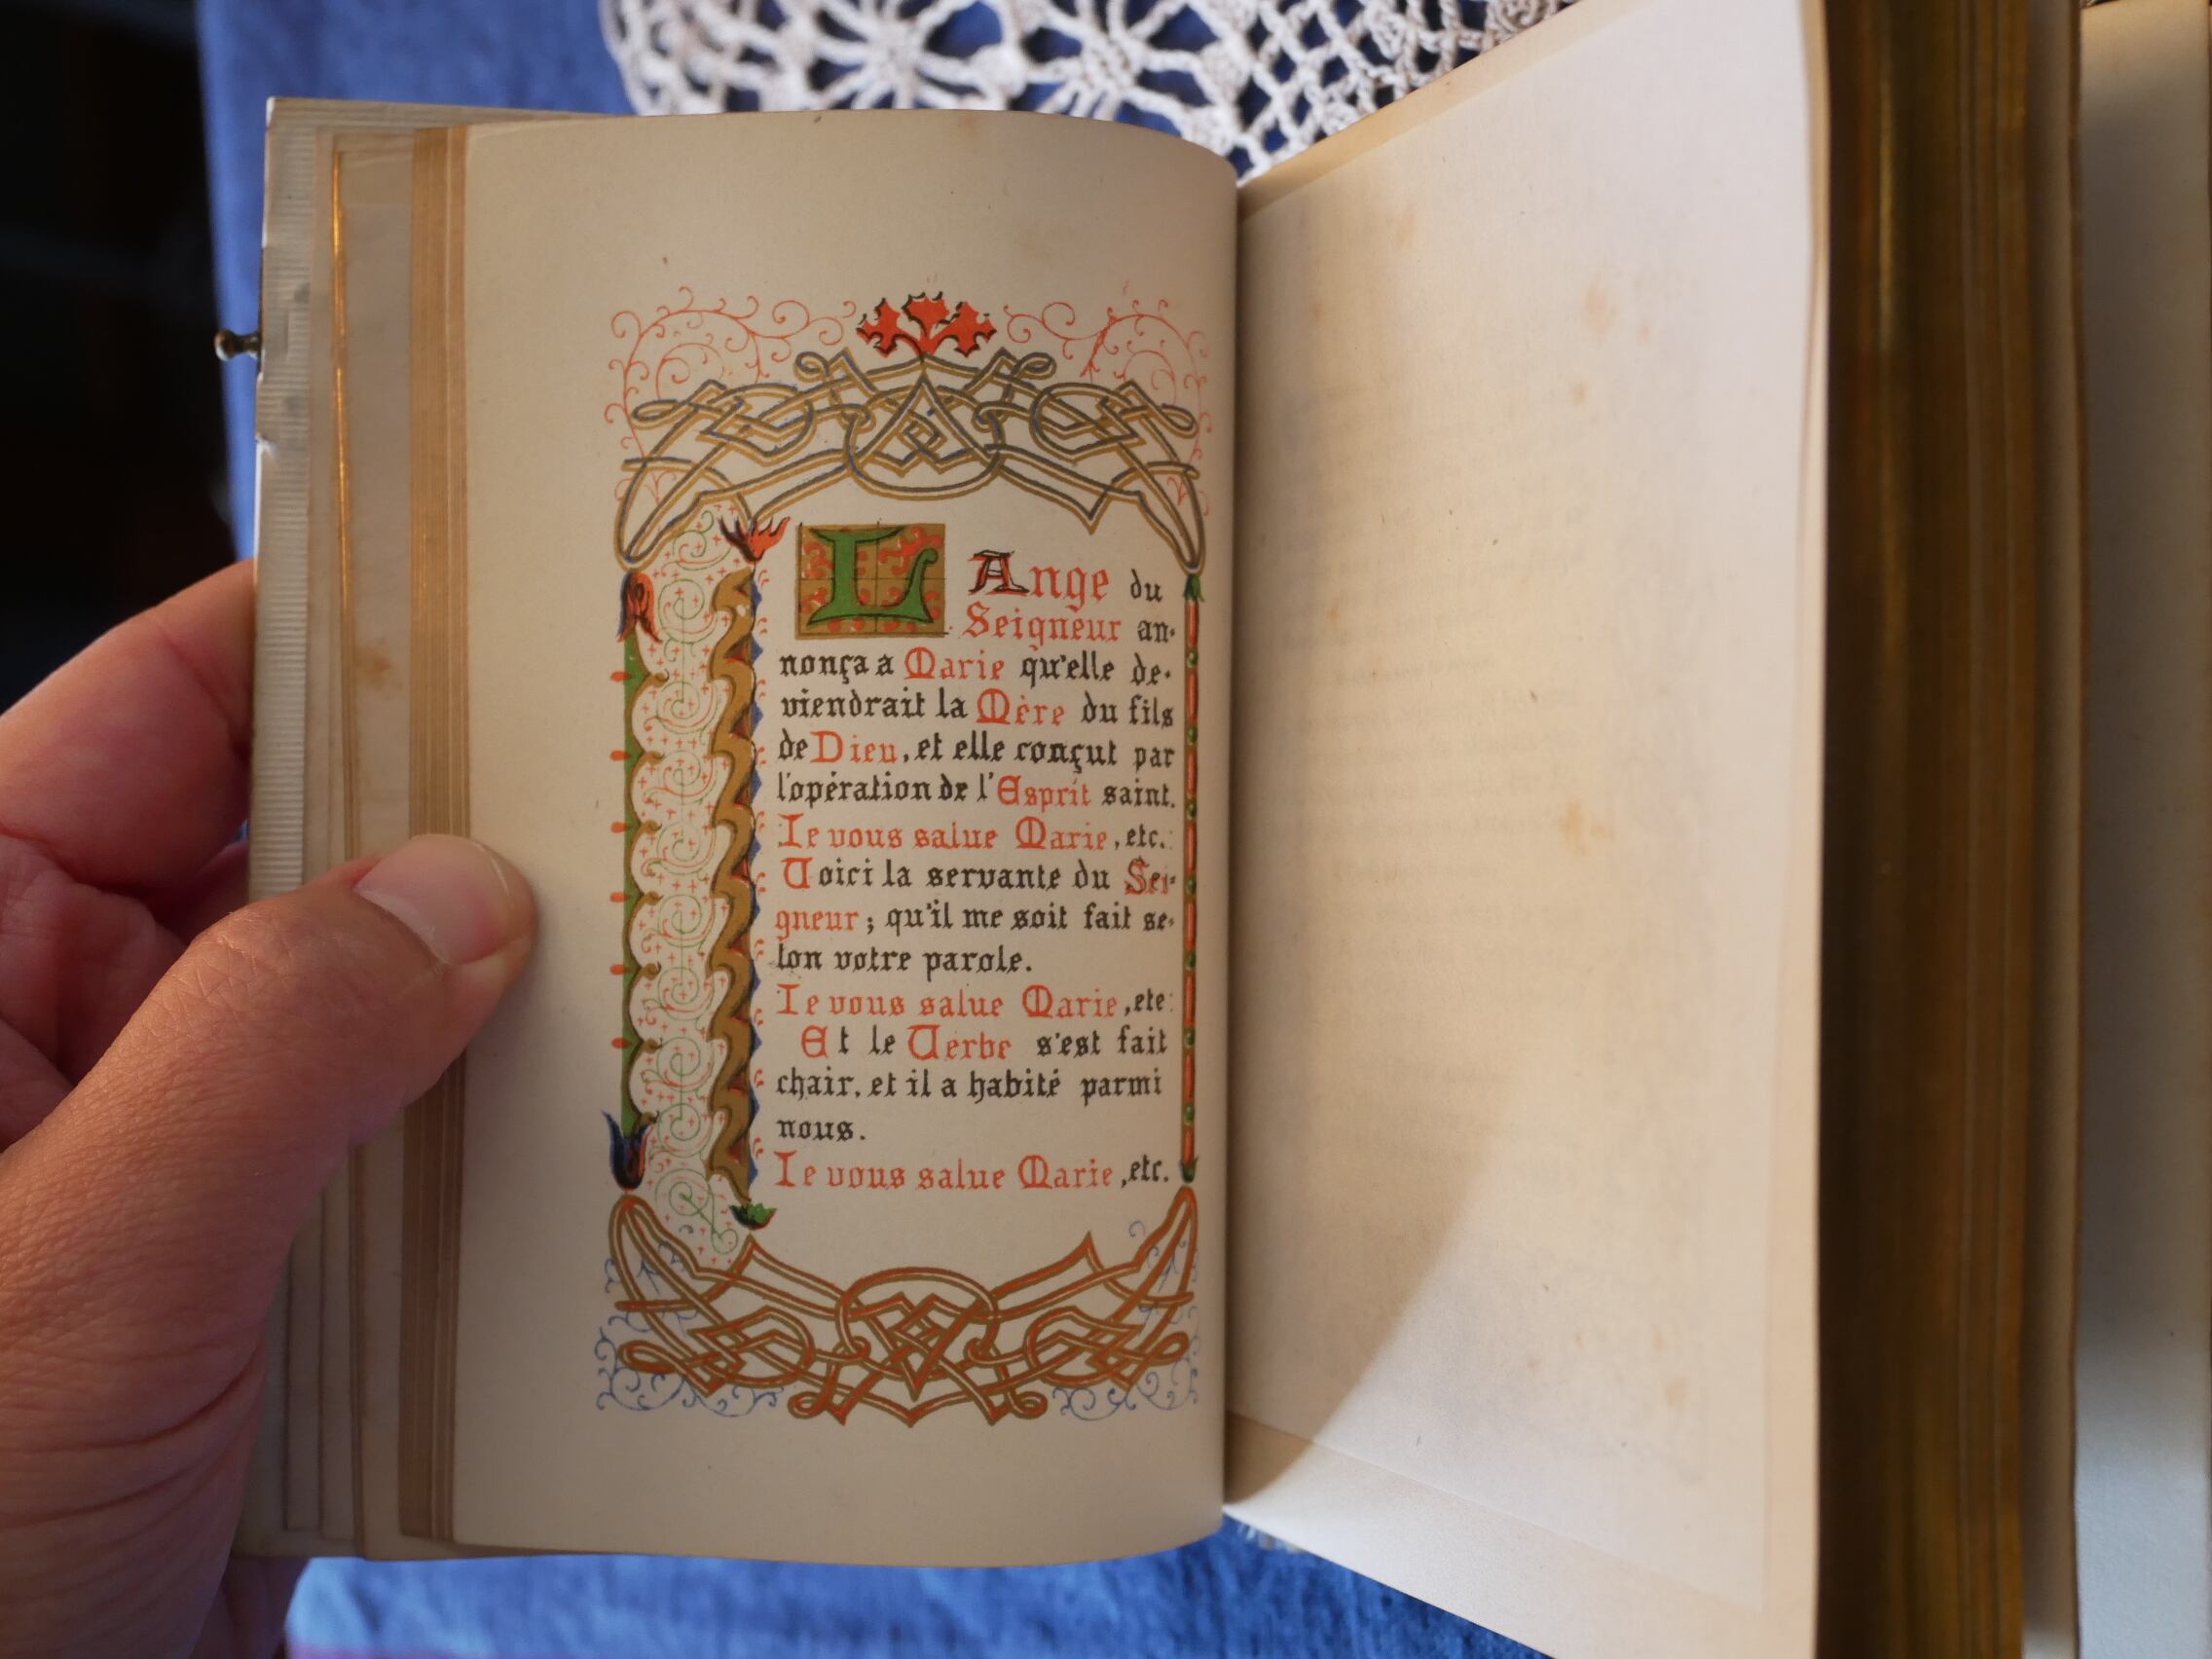 L Ange du
Seigneur an-
nonça a Marie qu'elle de-
viendrait la Mère du fils
de Dieu, et elle conçut par
l'opération de l'Esprit saint.
Ie vous salue Marie, etc.
Voici la servante du Sei-
gneur; qu'il me soit fait se-
lon votre parole.
Ie vous salue Marie, etc.
Et le Verbe s'est fait
chair, et il a habité parmi
nous.
Ie vous salue Marie, etc.